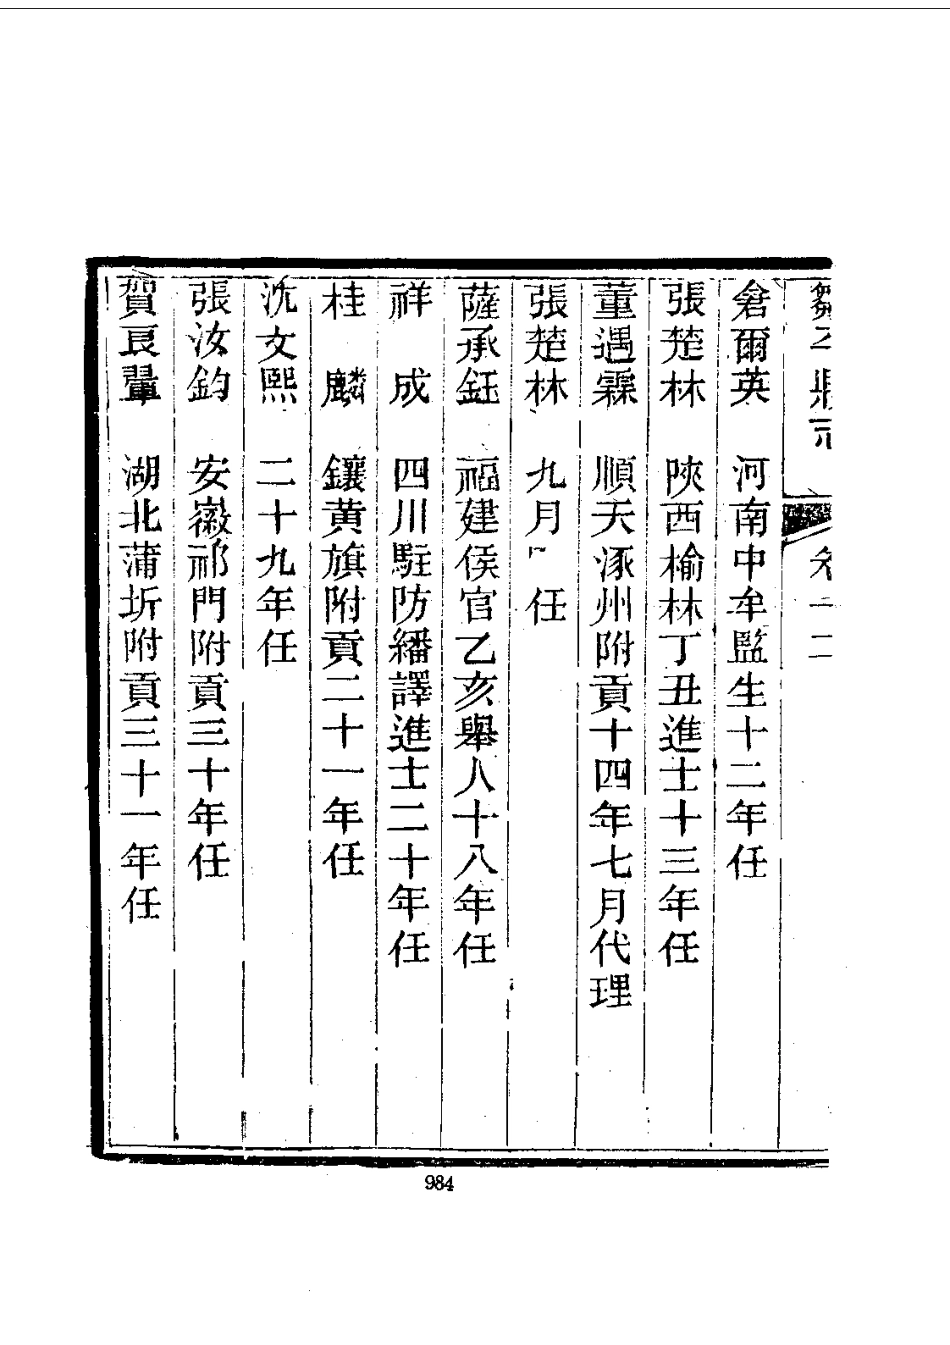 倉爾英　河南中牟監生十二年任
張楚林　陜西榆林丁丑進士十三年任
董遇霖　順天涿州附貢十四年七月代理
張楚林　九月　任
薩承鈺　福建侯官乙亥舉人十八年任
祥　成　四川駐防繙譯進士二十年任
桂　麟　鑲黃旗附貢二十一年任
沈文熙　二十九年任
張汝鈞　安徽祁門附貢三十年任
賀良韏　湖北蒲圻附貢三十一年任
984